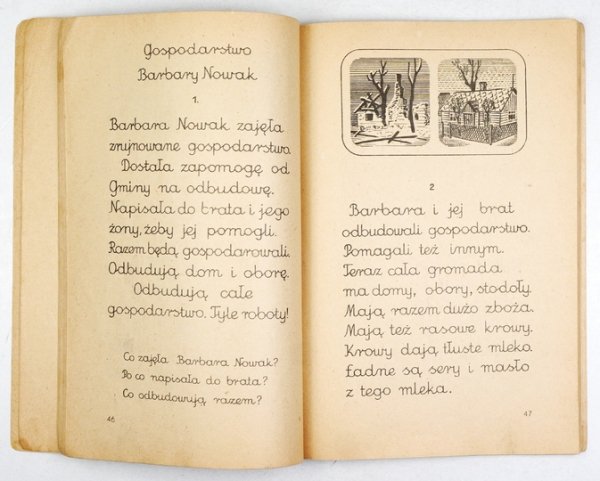 Gospodarstwo
Barbary Nowak
1.
Barbara Nowak zajęła
zrujnowane gospodarstwo.
Dostała zapomogę od
Gminy na odbudowę.
Napisała do brata i jego
żony, żeby jej pomogli.
Razem będą gospodarowali.
Odbudują dom i oborę.
Odbudują całe
gospodarstwo. Tyle roboty!
Co zajęła Barbara Nowak?
Po co napisała do brata?
Co odbudowują razem?
46
2
Barbara i jej brat
odbudowali gospodarstwo.
Pomagali też innym.
Teraz cała gromada
ma domy, obory, stodoły.
Mają razem dużo zboża.
Mają też rasowe krowy.
Krowy dają tłuste mleko.
Ładne są sery i masło
z tego mleka.
47